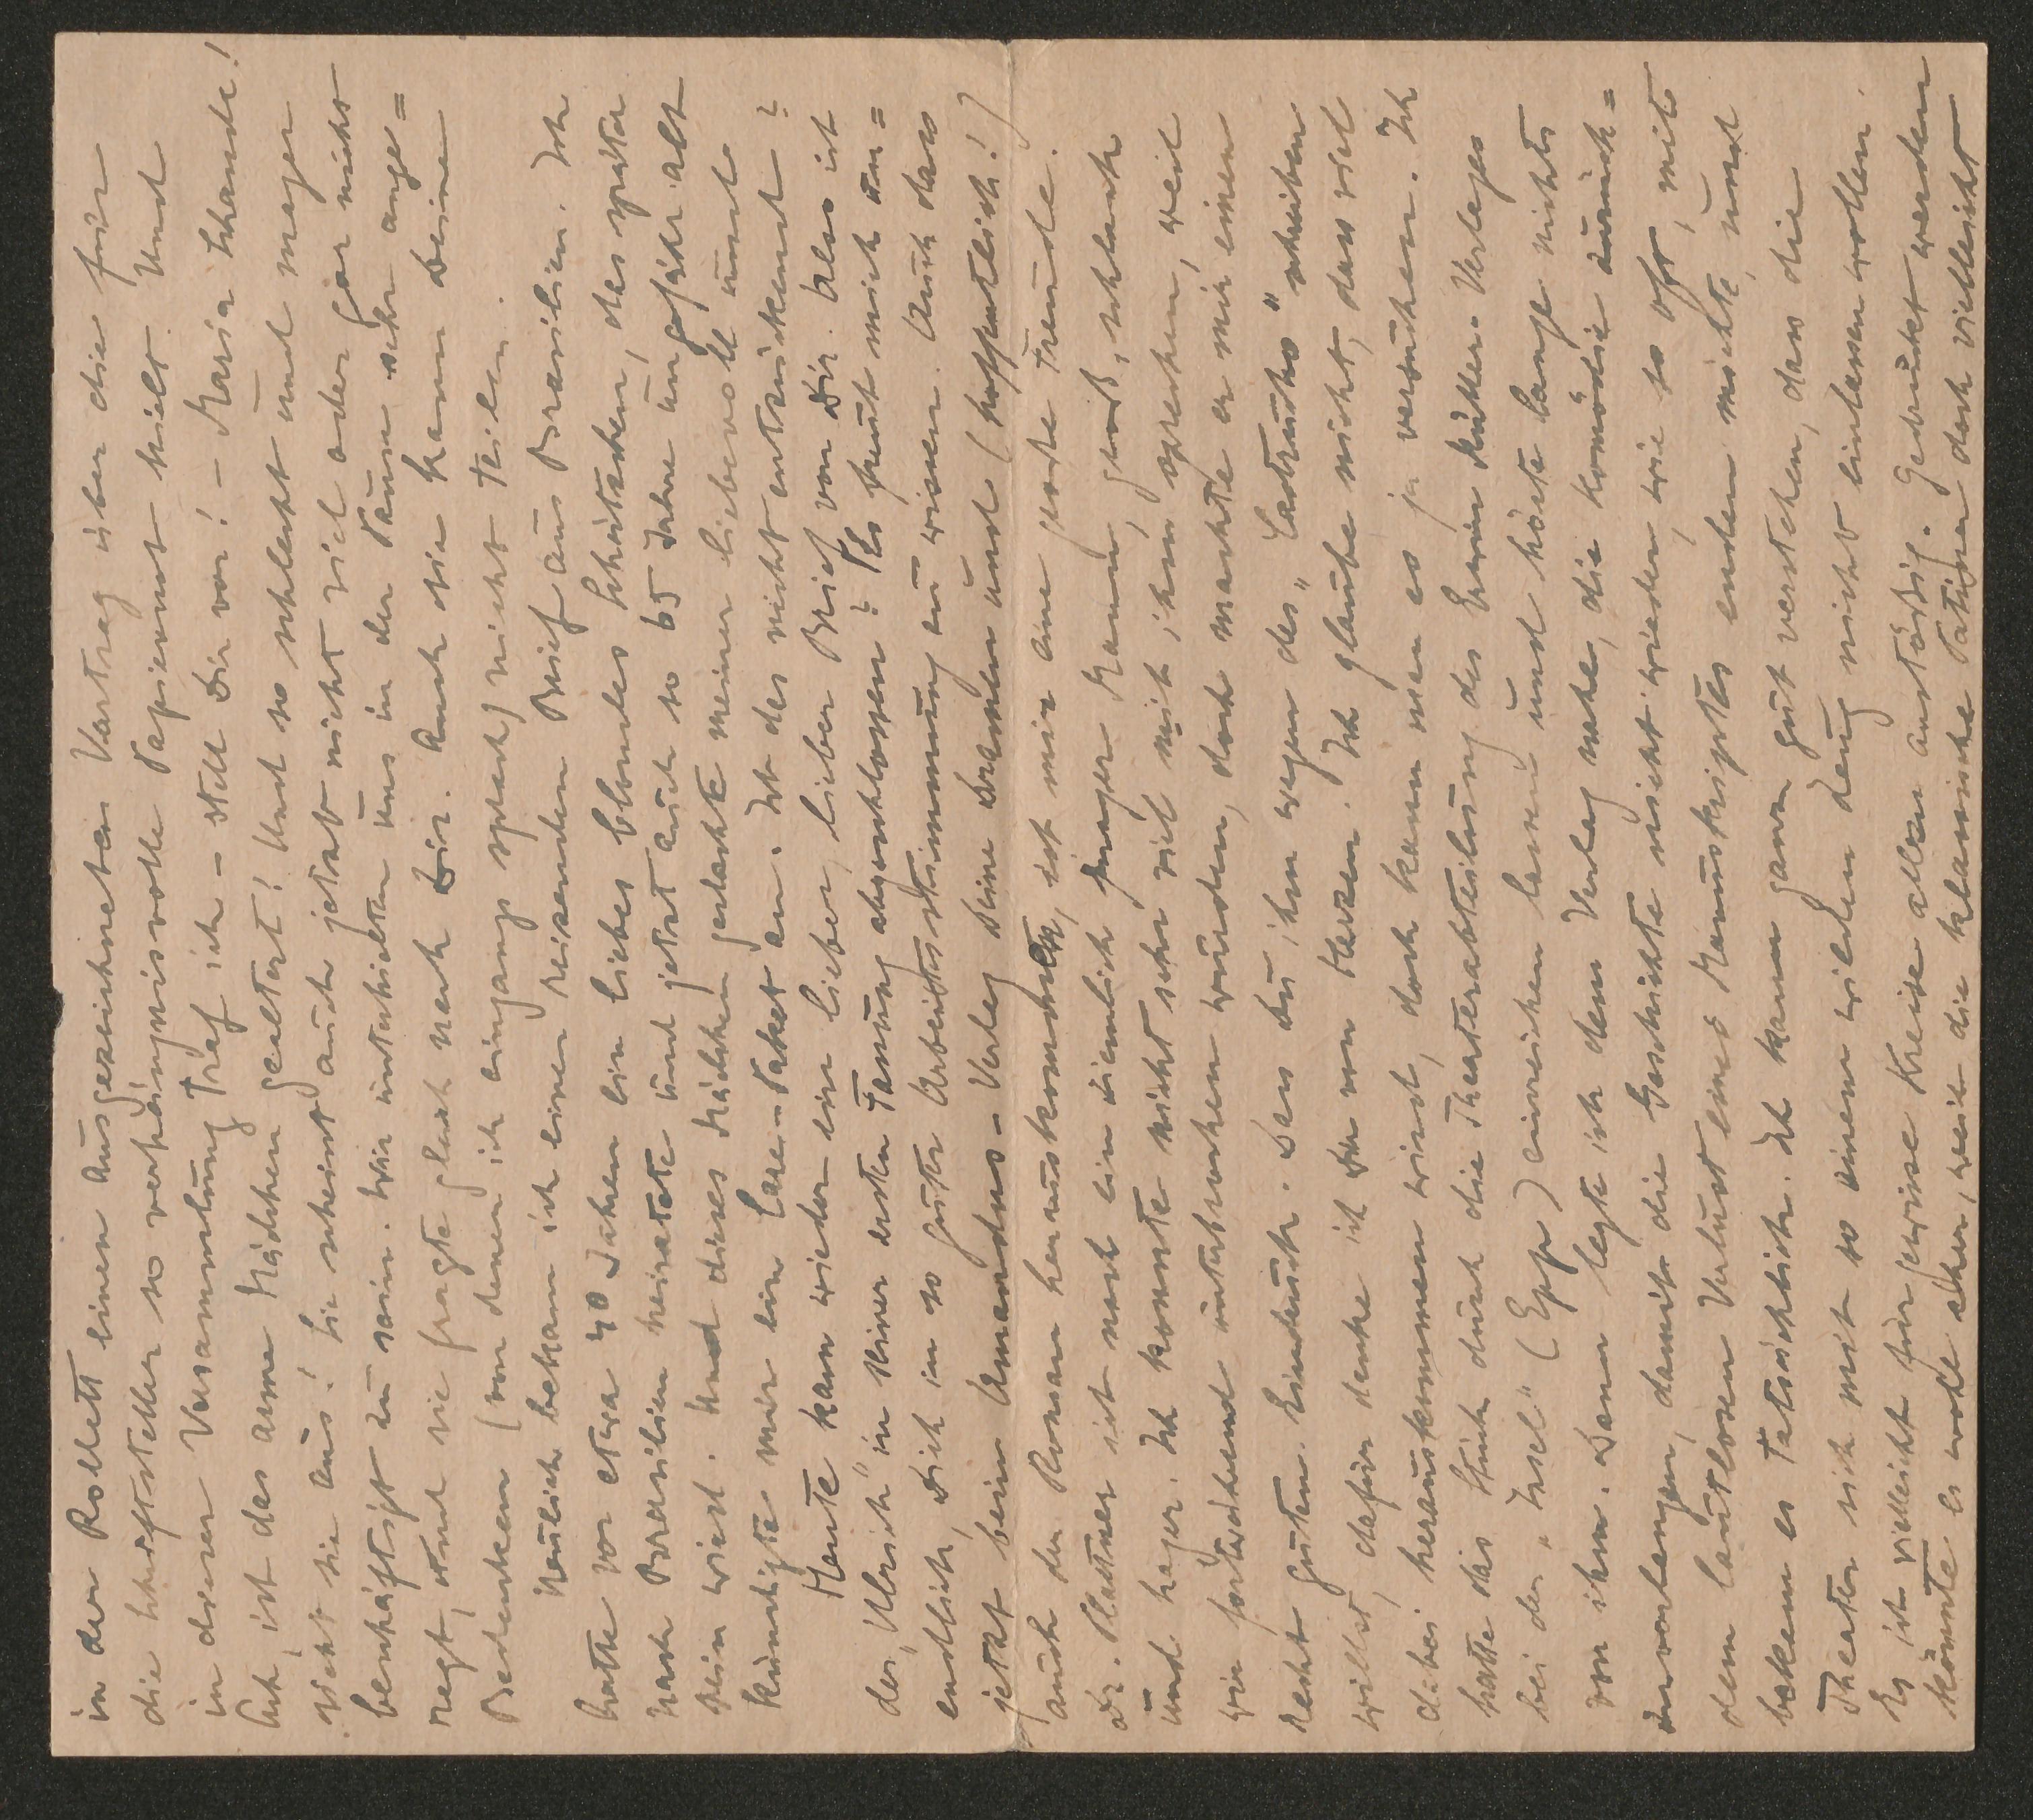 in der Roblett einen ausgezeichneten Vortrag über die für
die Schriftsteller so verhängnisvolle Papiernot hielt. Und
in dieser Versammlung traf ich – stell Dir vor! – Maria
Ach, ist das arme Mädchen gealtert! Und so schlecht und mager
sieht sie aus! Sie scheint auch jetzt nicht viel oder gar nicht
beschäftigt zu sein. Wir unterhielten uns in der Pause sehr ange=
regt, und sie fragte gleich nach Dir. Auch sie kann Deine
Bedenken (von denen ich eingangs sprach) nicht teilen.
Neulich bekam ich einen reizenden Brief aus Brasilien. Ich
hatte vor etwa 40 Jahren ein liebes blondes Schätzchen, das später
nach Brasilien heiratete und jetzt auch so 65 Jahre ungefähr alt
sein wird. Und dieses Mädchen gedachte meiner liebevoll und
kündigte mir ein Care-Paket an. Ist das nicht entzückend?
Heute kam wieder ein lieber, lieber Brief von Dir. Also ist
der „Ulrich" in seiner ersten Fassung abgeschlossen? Es freut mich un=
endlich, Dich in so guter Arbeitsstimmung zu wissen. Auch dass
jetzt beim Amandus-Verlag Deine Dramen und (hoffentlich!)
auch der Roman herauskommen, ist mir eine große Freude.
Dr. Plattner ist noch ein ziemlich junger Mann, groß, schlank
und hager. Ich konnte nicht sehr viel mit ihm sprechen, weil
wir fortwährend unterbrochen wurden, doch machte er mir einen
recht guten Eindruck. Dass Du ihm wegen des „Castrucho" schreiben
willst, dafür danke ich Dir von Herzen. Ich glaube nicht, dass viel
dabei herauskommen wird, doch kann man es ja versuchen. Ich
hatte das Stück durch die Theaterabteilung des Erwin Müller-Verlages
bei der „Insel" (Epp) einreichen lassen und hörte lange nichts
von ihm. Dann legte ich dem Verlag nahe, die Komödie zurück=
zuverlangen, damit die Geschichte nicht wieder, wie so oft, mit
dem lautlosen Verlust eines Manuskriptes enden möchte, und
bekam es tatsächlich. Ich kann ganz gut verstehen, dass die
Theater sich mit so einem wilden Zeug nicht einlassen wollen.
Es ist vielleicht für gewisse Kreise allzu anstößig. Gedruckt werden
könnte es wohl eher, weil die klassische Patina doch vielleicht